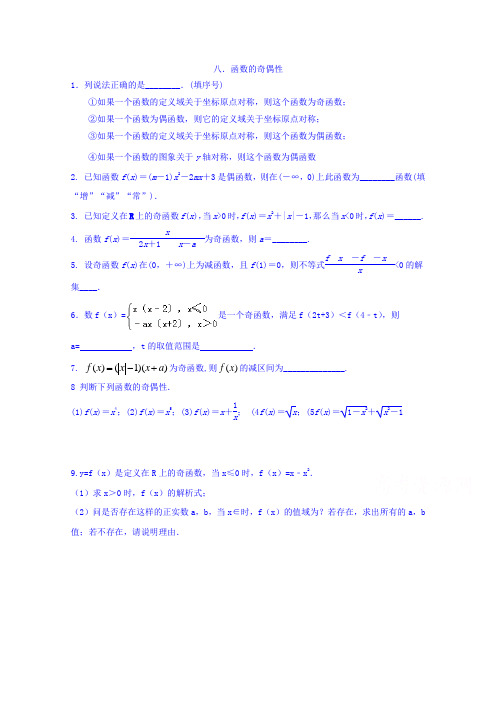 八．函数的奇偶性
1．列说法正确的是________．(填序号)
①如果一个函数的定义域关于坐标原点对称，则这个函数为奇函数；
②如果一个函数为偶函数，则它的定义域关于坐标原点对称；
③如果一个函数的定义域关于坐标原点对称，则这个函数为偶函数；
④如果一个函数的图象关于y轴对称，则这个函数为偶函数
2. 已知函数f(x)＝(m－1)x²－2mx＋3是偶函数，则在(－∞，0)上此函数为________函数(填
“增”“减”“常”)．
3. 已知定义在R上的奇函数f(x)，当x>0时，f(x)＝x²＋|x|－1，那么当x<0时，f(x)＝______.
4. 函数f(x)＝x/(2x＋1 x－a)为奇函数，则a＝________.
5. 设奇函数f(x)在(0，＋∞)上为减函数，且f(1)＝0，则不等式(f x －f －x)/x<0的解
集____．
6．数f（x）={x（x﹣2），x≤0 ﹣ax（x+2），x＞0 是一个奇函数，满足f（2t+3）＜f（4﹣t），则
a=____________，t的取值范围是____________．
7. f(x)=(|x|−1)(x+a)为奇函数,则f(x)的减区间为______________.
8 判断下列函数的奇偶性．
(1)f(x)＝x⁴；(2)f(x)＝x⁵；(3)f(x)＝x＋1/x； (4f(x)＝√x；(5f(x)＝√(1－x²)＋√(x²－1)
9.y=f（x）是定义在R上的奇函数，当x≤0时，f（x）=x﹣x²．
（1）求x＞0时，f（x）的解析式；
（2）问是否存在这样的正实数a，b，当x∈时，f（x）的值域为？若存在，求出所有的a，b
值；若不存在，请说明理由．